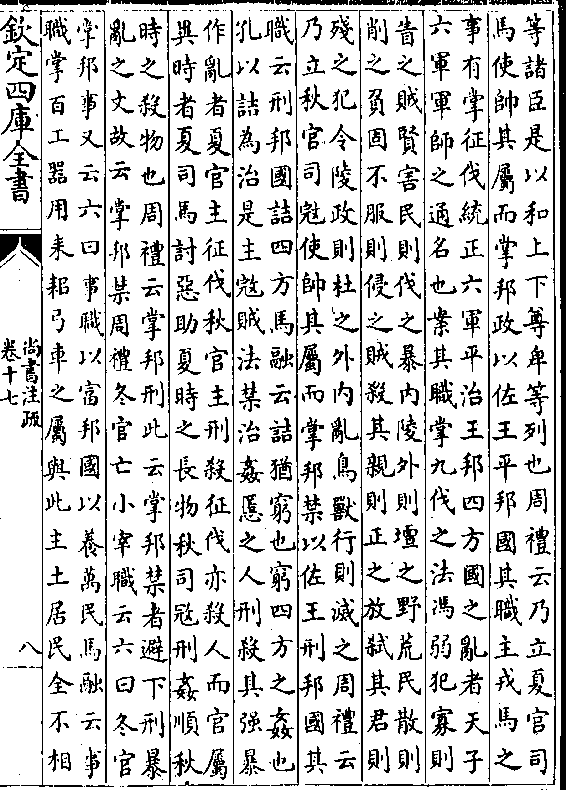 等諸臣是以和上下尊卑等列也周禮云乃立夏官司
馬使帥其屬而掌邦政以佐王平邦國其職主戎馬之
事有掌征伐統正六軍平治王邦四方國之亂者天子
六軍軍師之通名也案其職掌九伐之法馮弱犯寡則
眚之賊賢害民則伐之暴内陵外則壇之野荒民散則
削之負固不服則侵之賊殺其親則正之放弑其君則
殘之犯令陵政則杜之外内亂鳥獸行則滅之周禮云
乃立秋官司寇使帥其屬而掌邦禁以佐王刑邦國其
職云刑邦國詰四方馬融云詰猶窮也窮四方之姦也
孔以詰為治是主寇賊法禁治姦慝之人刑殺其强暴
作亂者夏官主征伐秋官主刑殺征伐亦殺人而官屬
異時者夏司馬討惡助夏時之長物秋司寇刑姦順秋
時之殺物也周禮云掌邦刑此云掌邦禁者避下刑暴
亂之文故云掌邦禁周禮冬官亡小宰職云六曰冬官
掌邦事又云六曰事職以富邦國以養萬民馬融云事
職掌百工器用耒耜弓車之屬與此主土居民全不相
欽定四庫全書
尚書注疏
卷十七
八